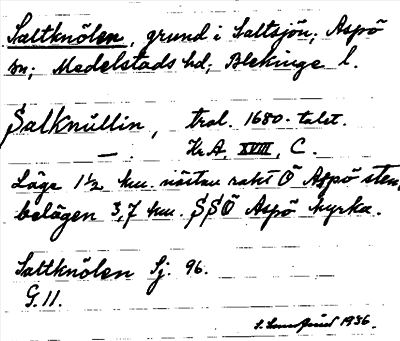 Saltknölen, grund i Saltsjön; Aspö
sn; Medelstads hd; Blekinge l.
Salknüllin, trol. 1680-talet.
— . Kr.A, XVIII, C.
Läge 1½ km. nästan rakt Ö Aspö sten,
belägen 3,7 km. SSÖ Aspö kyrka.
Saltknölen Sj. 96.
G. 11.
1936.